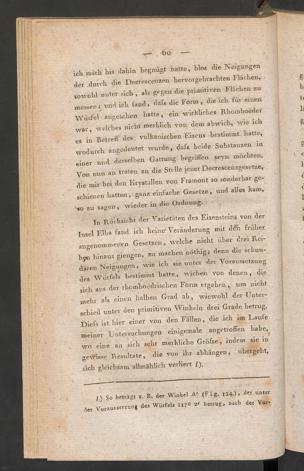 — 60 —
ich mich bis dahin begnügt hatte, blos die Neigungen
der durch die Decrescenzen hervorgebrachten Flächen,
sowohl unter sich, als gegen die primitiven Flächen zu
messen; und ich fand, daſs die Form, die ich für einen
Würfel angesehen hatte, ein wirkliches Rhomboëder
war, welches nicht merklich von dem abwich, wie ich
es in Betreff des vulkanischen Eisens bestimmt hatte,
wodurch angedeutet wurde, daſs beide Substanzen in
einer und derselben Gattung begriffen seyn möchten.
Von nun an traten an die Stelle jener Decrescenzgesetze,
die mir bei den Krystallen von Framont so sonderbar ge-
schienen hatten, ganz einfache Gesetze, und alles kam,
so zu sagen, wieder in die Ordnung.
In Rücksicht der Varietäten des Eisensteins von der
Insel Elba fand ich keine Veränderung mit den früher
angenommenen Gesetzen, welche nicht über drei Rei-
hen hinaus giengen, zu machen nöthig; denn die sekun-
dären Neigungen, wie ich sie unter der Voraussetzung
des Würfels bestimmt hatte, wichen von denen, die
sich aus der rhomboëdrischen Form ergeben, um nicht
mehr als einen halben Grad ab, wiewohl der Unter-
schied unter den primitiven Winkeln drei Grade betrug.
Dieſs ist hier einer von den Fällen, die ich im Laufe
meiner Untersuchungen einigemale angetroffen habe,
wo eine an sich sehr merkliche Gröſse, indem sie in
gewisse Resultate, die von ihr abhängen, übergeht,
sich gleichsam allmählich verliert
So beträgt z. B. der Winkel (Fig. 124.), der unter
der Voraussetzung des Würfels betrug, nach der Vor-